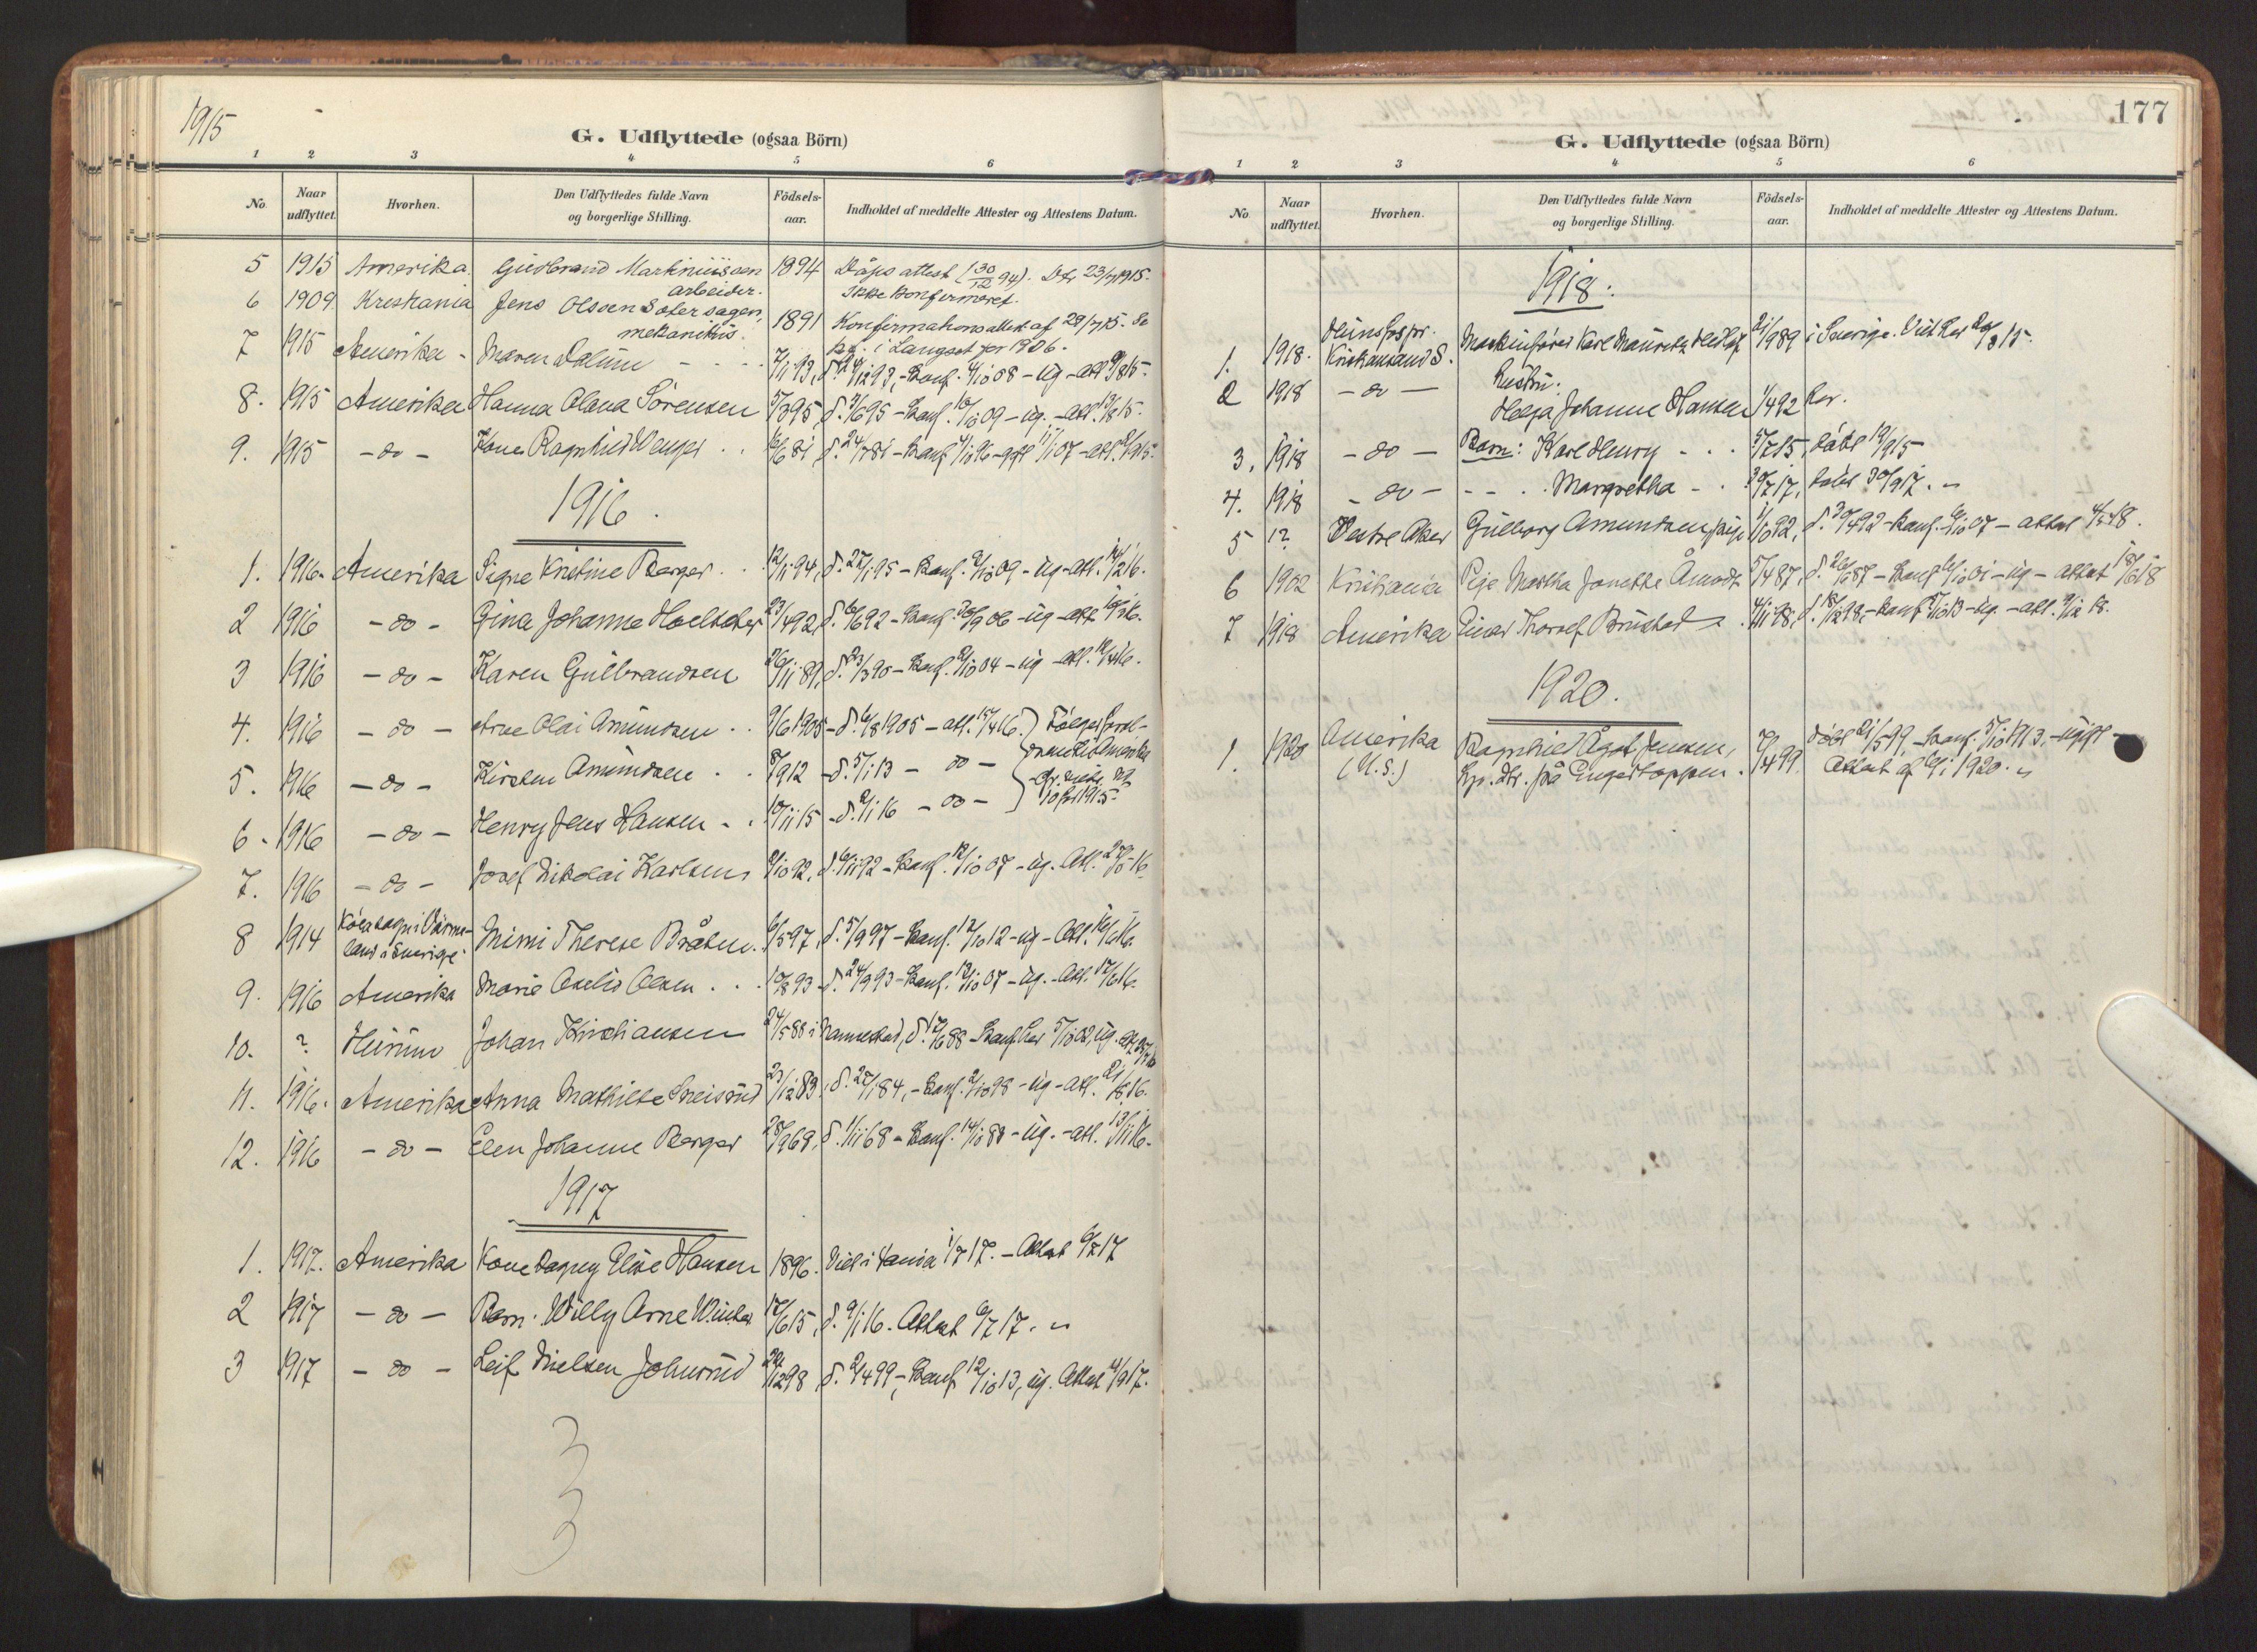 1915
G. Udflyttede (ogsaa Börn)
1 2 3 4 5 6
No. Naar udflyttet. Hvorhen. Den Udflyttedes fulde Navn og borgerlige Stilling. Födselsaar. Indholdet af meddelte Attester og Attestens Datum.
5 1915 Amerika. Gudbrand Martiniussen 1894 Dåpsattest (30/12 94). Dtr 23/7 1915.
arbeider. Ikke konfirmeret.
6 1909 Kristiania Jens Olsen Sætersagen, 1891 Konfirmationsattest af 28/7 15. Se
mekanikus. kf. i Langset for 1906.
7 1915 Amerika - Maren Dalum - - 7/11 93, d. 24/12 93, - Konf. 4/10 08 - ug - att 9/8 15.
8. 1915 Amerika Hanna Olava Sørensen 5/3 95 d. 3/6 95 - Konf. 10/10 09 - ug. - att. 19/8 15.
9. 1915 - do - Kone Ragnhild Wenger . . 16/6 81 d. 24/7 81 - Konf. 4/10 96 - gift 11/1 07 - att. 9/9 15.
1916.
1. 1916. Amerika Signe Kristine Berger . . 12/11 94, d. 27/1 95 - Konf. 9/10 09 - ug - att. 14/2 16.
2 1916 - do - Gina Johanne Hoelseter 23/4 92, d. 6/6 92 - Konf. 30/9 06 - ug - att 10/3 16.
3 1916 - do - Karen Gulbrandsen 26/11 89, d. 23/3 90 - Konf. 2/10 04 - ug - att. 12/4 16.
4. 1916 - do - Arne Olai Amundsen . . 9/6 1905 - d. 6/8 1905 - att. 15/4 16. Følger foræl-
5. 1916 - do - Kirsten Amundsen . . 8/9 12 - d. 5/1 13 - do - drene til Amerika
6. 1916 - do - Henry Jens Hansen . . 10/11 15 - d. 2/1 16 - do -
7. 1916 - do - Josef Nikolai Karlsen 9/10 92, d. 6/11 92 - Konf. 12/10 07 - ug. Att. 27/5 16.
8 1914 Köla sogn i Värmland i Sverige. Mimi Therese Bråten. 6/5 97, d. 5/9 97 - Konf. 12/10 12 - ug - Att. 16/6 16.
9. 1916 Amerika Marie Oselie Olsen . . 10/8 93 - d. 24/9 93 - Konf. 12/10 07 - ug. - Att. 17/6 16.
10. ? Hurum Johan Kristiansen 24/5 88 i Nannestad, d. 17/6 88 - Konf. her 5/10 02, ug.
11. 1916. Amerika Anna Mathilde Sneisrud 23/12 83, d. 27/1 84, - Konf. 2/10 98 - ug - att. 21/8 16.
12. 1916 - do - Elen Johanne Berger 28/9 68, d. 1/11 68 - Konf. 14/10 83 - ug. - att. 13/11 16.
1917
1. 1917. Amerika Kone Dagny Elise Hansen 1896. Viet i Kania 1/7 17. - Attest 6/7 17
2 1917 - do - Barn: Willy Arne Winther 17/6 15, d. 9/1 16. Attest 6/7 17.
3 1917 - do - Leif Nielsen Johnsrud 20/12 98, d. 2/4 99, - Konf 12/10 13, ug. Attest 4/9 17.
177
G. Udflyttede (ogsaa Börn)
1 2 3 4 5 6
No. Naar udflyttet. Hvorhen. Den Udflyttedes fulde Navn og borgerlige Stilling. Födselsaar. Indholdet af meddelte Attester og Attestens Datum.
1918:
1. 1918. Hunsfos pr. Kristiansand S. Maskinfører Karl Mauritz 21/9 89 i Sverige. Viet her
2 1918 - do - Hustru: Helga Johanne Hansen 1/4 92 her.
3. 1918 - do - Barn: Karl Henry - . . 5/7 15, døbt 19/9 15
4. 1918 - do - - - . . Margretha - . 30/7 17, døbt 30/9 17.
5 1? Vestre Aker Gulborg Amundsen, pige 1/10 92, d. 30/4 92 - Konf. 6/10 07 - attest
6 1902 Kristiania Pige Martha Jonette Åmodt 5/4 87, d. 26/6 87 - Konf 6/10 01 - ug - attest 18/6 18
7 1918 Amerika Einar Thoralf Brustad . 4/11 98, d. 18/12 98, - Konf 5/10 13 - ug. - att. 9/12 18.
1920.
1. 1920 Amerika (U.S.) Ragnhild Ågot Jensen, 7/4 99. døbt 21/5 99, - Konf. 5/10 1913, - ugift -
Hp. dtr. på Engestoppen. Attest af 6/1 1920.